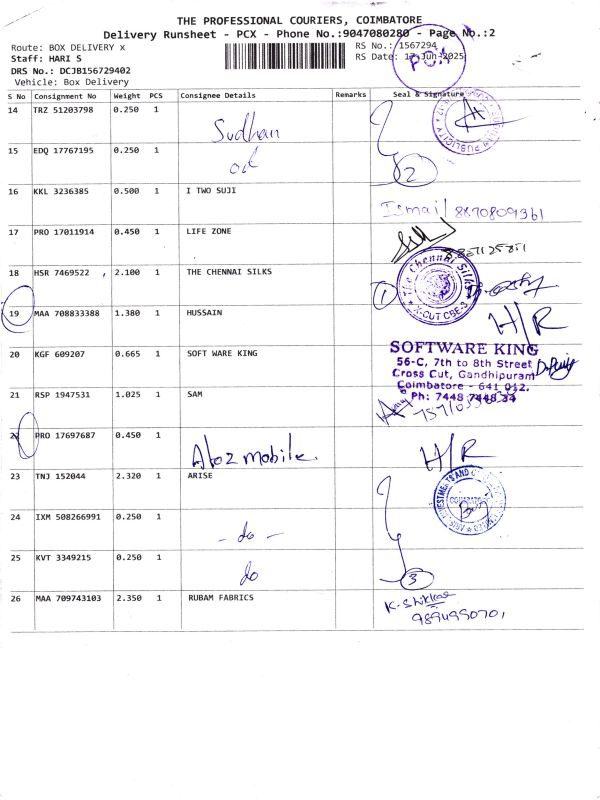 THE PROFESSIONAL COURIERS, COIMBATORE
Delivery Runsheet - PCX - Phone No.:9047080280 - Page No.:2
Route: BOX DELIVERY x
RS No.: 1567294
Staff: HARI S
RS Date: 17-Jun-2025
DRS No.: DCJB156729402
Vehicle: Box Delivery
S No Consignment No Weight PCS Consignee Details Remarks Seal & Signature
14 TRZ 51203798 0.250 1
Sudhan
15 EDQ 17767195 0.250 1
2
16 KKL 3236385 0.500 1 I TWO SUJI
Ismail 8870809361
17 PRO 17011914 0.450 1 LIFE ZONE
18 HSR 7469522 , 2.100 1 THE CHENNAI SILKS
The Chennai Silks
X-CUT CBE-3
1
19 MAA 708833388 1.380 1 HUSSAIN
H/R
20 KGF 609207 0.665 1 SOFT WARE KING
SOFTWARE KING
56-C, 7th to 8th Street
Cross Cut, Gandhipuram
Coimbatore - 641 012.
Ph: 7448 7448 34
21 RSP 1947531 1.025 1 SAM
22 PRO 17697687 0.450 1
Atoz mobile.
H/R
23 TNJ 152044 2.320 1 ARISE
24 IXM 508266991 0.250 1
- do -
25 KVT 3349215 0.250 1
do
3
26 MAA 709743103 2.350 1 RUBAM FABRICS
9894990701